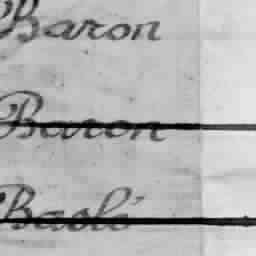 Baron
Baron
Baolo